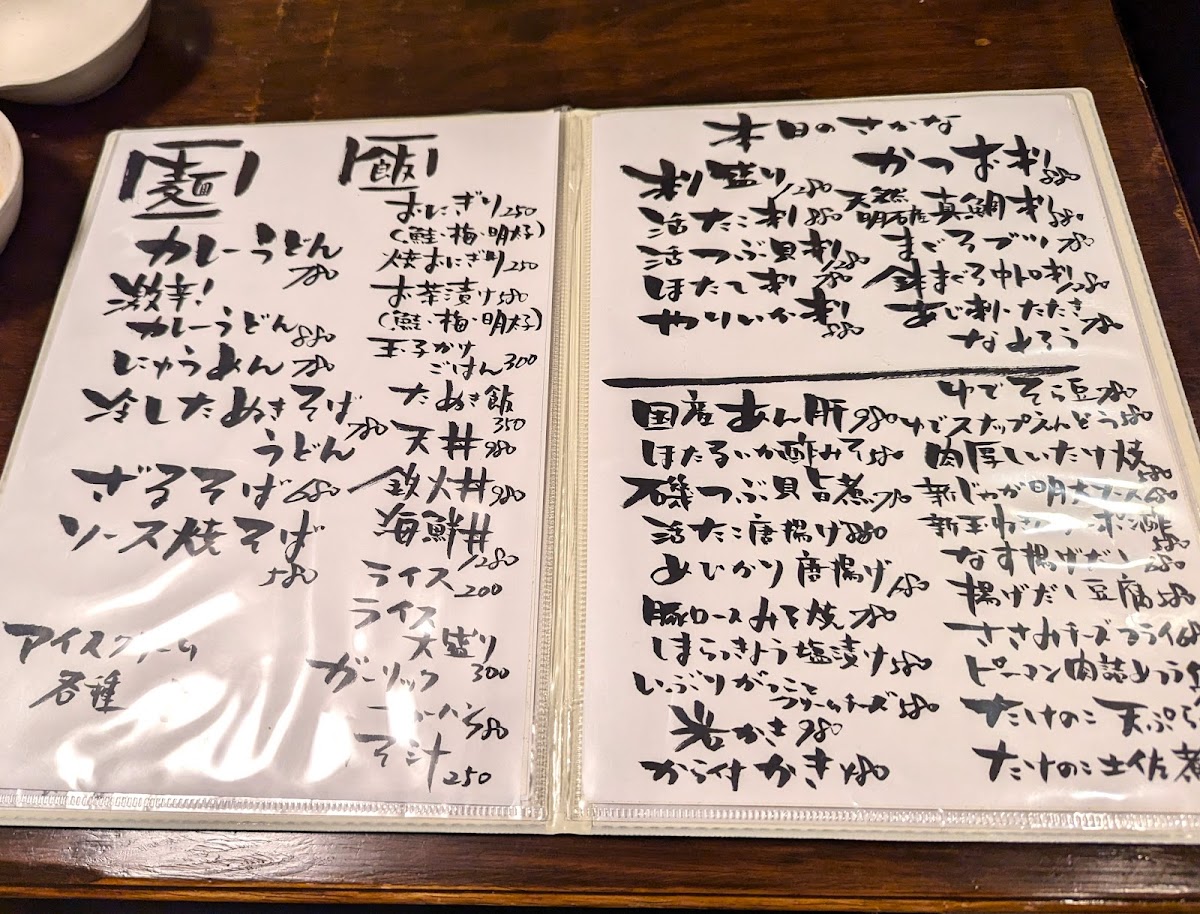 麺
カレーうどん
780
激辛!
カレーうどん 880
にゅうめん 780
冷したぬきそば 780
うどん
ざるそば 680
ソース焼そば
580
アイスクリーム
各種
飯
おにぎり 250
(鮭・梅・明太子)
焼おにぎり 250
お茶漬け 580
(鮭・梅・明太子)
玉子かけ
ごはん 300
たぬき飯
350
天丼 980
鉄火丼 980
海鮮丼
1280
ライス
200
ライス
大盛り
300
ガーリック
580
そ汁
250
本日のさかな
刺盛り 1280
活たこ刺 880
活つぶ貝刺 1280
ほたて刺 780
やりいか刺
880
かつお刺 880
天然
明石産 真鯛刺 880
まぐろブツ 780
生まぐろ中トロ刺 1280
あじ刺・たたき 780
なめろう
国産あん肝 980
ほたるいか酢みそ 580
磯つぶ貝旨煮 780
活たこ唐揚げ 880
めひかり唐揚げ 680
豚ロースみそ焼 780
しまらっきょう塩漬け 580
いぶりがっこと
クリームチーズ 580
岩かき 980
から付かき
ゆでそら豆 780
ゆでスナップえんどう 580
肉厚しいたけ焼
580
新じゃが明太ソース 680
新玉ねぎ ポン酢
580
なす揚げだし
揚げだし豆腐 580
ささみチーズフライ
ピーマン肉詰め
たけのこ天ぷら
たけのこ土佐煮